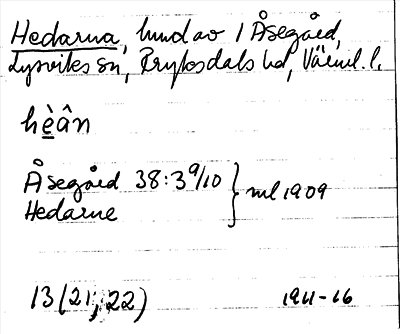 Hedarna, hund av 1 Åsegård,
Lysviks sn, Fryksdals hd, Värml. l.
hèân
Åsegård 38:3 9/10 } ml 1909
Hedarne
13 (21; 22) 1911-16